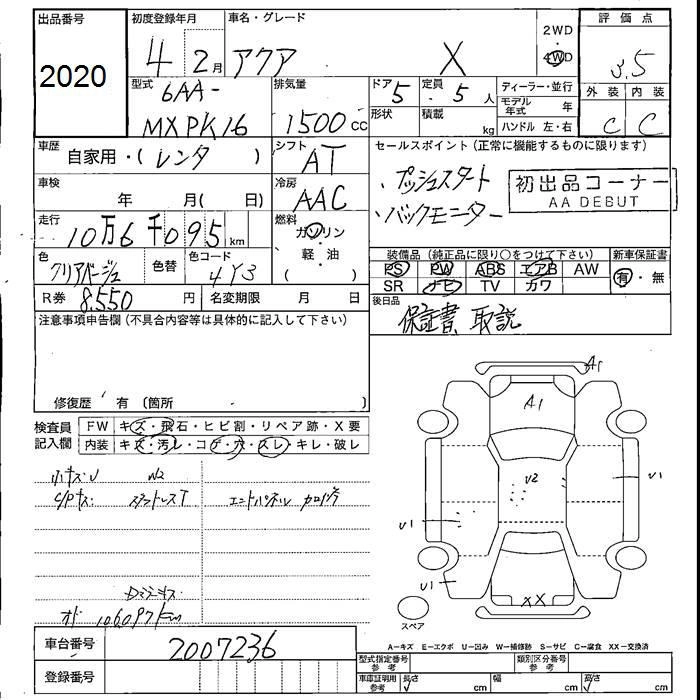 出品番号
2020
初度登録年月
4 2月
車名・グレード
アクア X
2WD
4WD
評価点
3.5
外装 内装
C C
型式
6AA-
MXPK16
排気量
1500 cc
ドア 5
定員 5人
形状
積載 kg
ディーラー・並行
モデル年式 年
ハンドル 左・右
車歴
自家用・(レンタ)
シフト
AT
セールスポイント(正常に機能するものに限ります)
・プッシュスタート
・バックモニター
初出品コーナー
AA DEBUT
車検
年 月( 日)
冷房
AAC
走行
10万6千095km
燃料
ガソリン
・
軽・油
色
クリアベージュ
色替
色コード
4Y3
装備品(純正品に限り○をつけて下さい)
PS PW ABS エアB AW
SR ナビ TV カワ
新車保証書
有・無
R券 8.550 円
名変期限 月 日
後日品
保証書 取説
注意事項申告欄(不具合内容等は具体的に記入して下さい)
修復歴 有(箇所
検査員記入欄
FW キズ・飛石・ヒビ割・リペア跡・X要
内装 キズ・汚レ・コゲ・穴・スレ・キレ・破レ
小キズ・U W2
エンドパネル
106097km
A1
A1
U2
U1
U1
U1
XX
スペア
A-キズ E-エクボ U-凹み W-補修跡 S-サビ C-腐食 XX-交換済
車台番号
2007236
登録番号
型式指定番号 参考
類別区分番号 参考
車庫証明用 参考
長さ cm
幅 cm
高さ cm